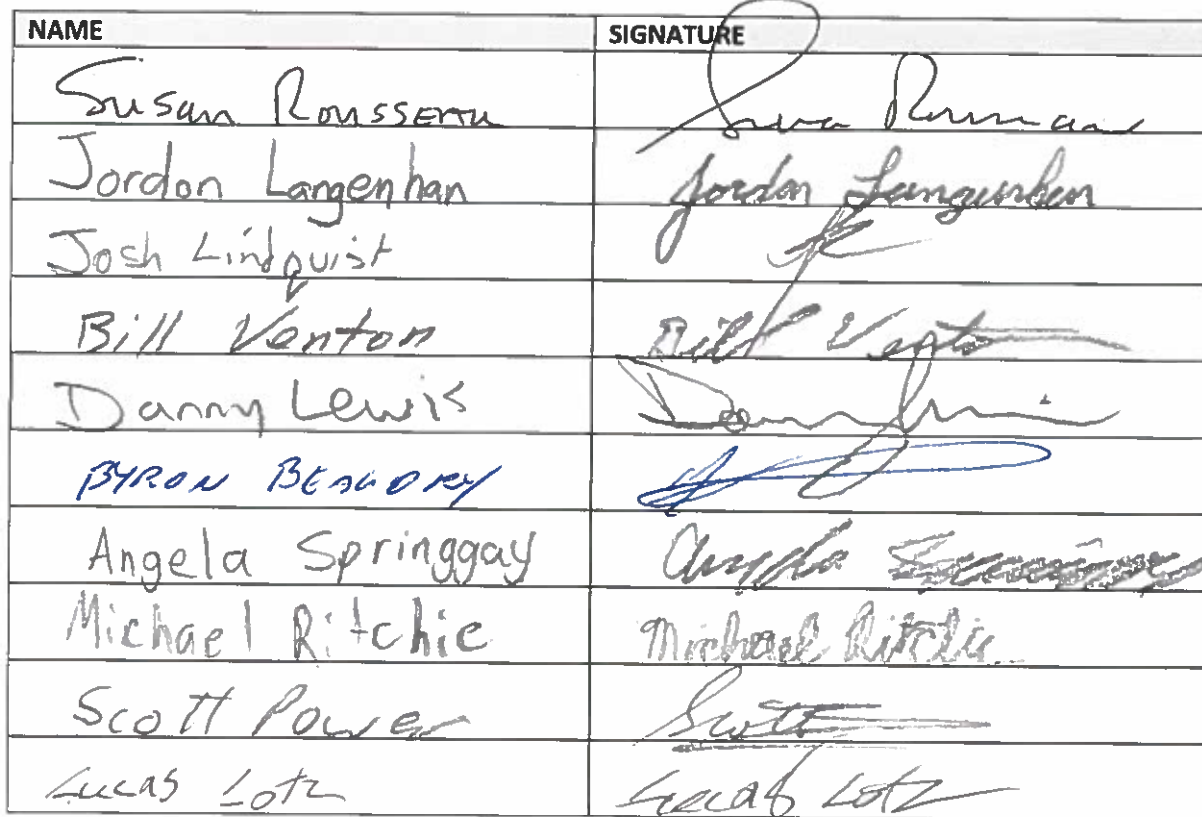 NAME SIGNATURE
Susan Rousseau
Jordon Langenhan Jordon Langenhan
Josh Lindquist
Bill Venton Bill Venton
Danny Lewis
BYRON BEAUDRY
Angela Springgay Angela
Michael Ritchie Michael Ritchie
Scott Power Scott
Lucas Lotz Lucas Lotz